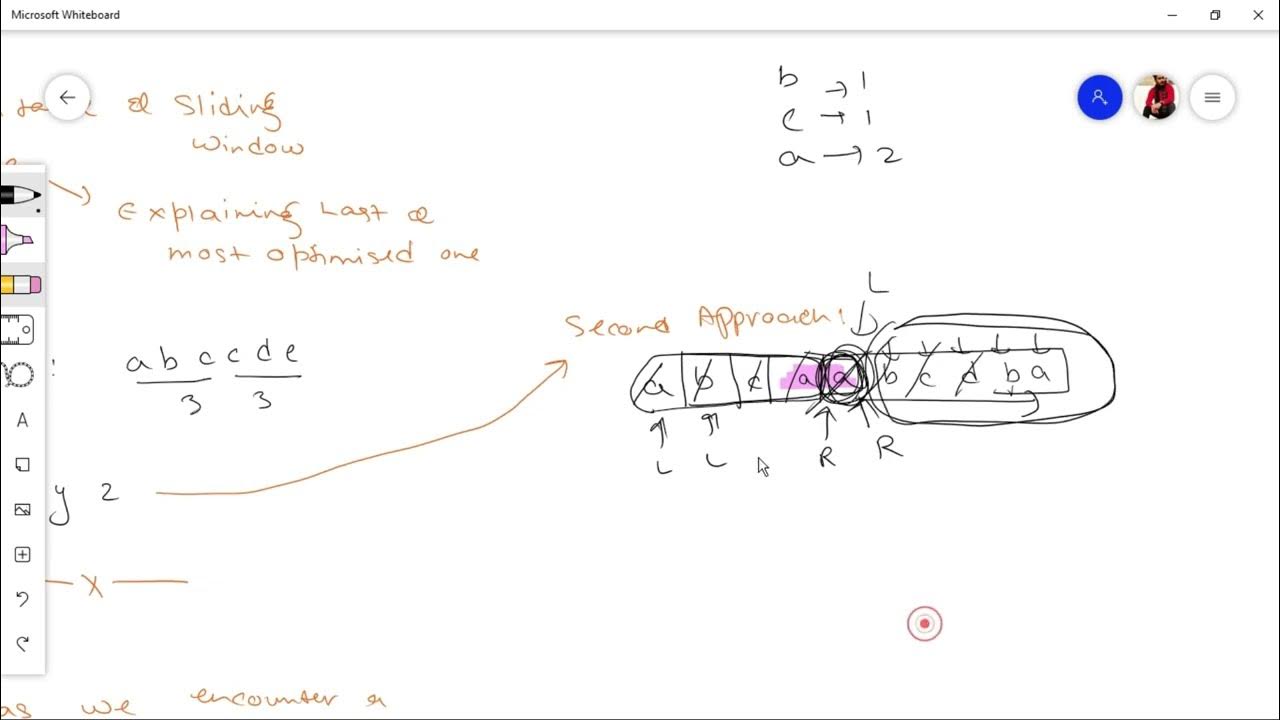 Microsoft Whiteboard
& Sliding
Window
Explaining Last &
most optimised one
b → 1
c → 1
a → 2
L
Second Approach:
a b c a a b c d b a
L L R R
: a b c c d e
3 3
y 2
X
A
as we encounter a